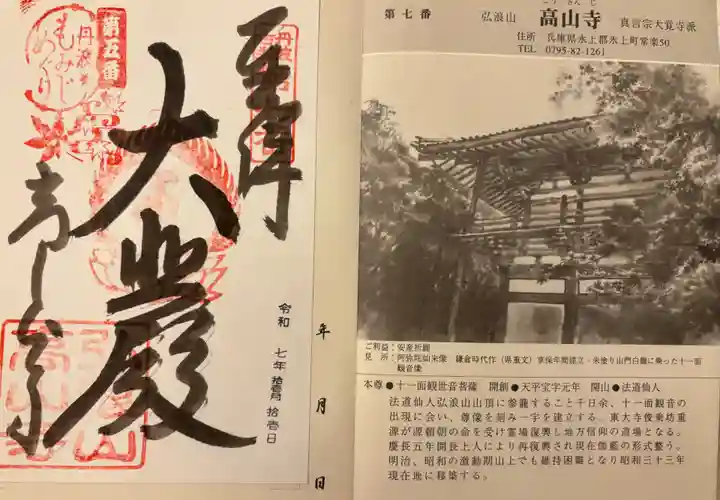 第五番
丹波
もみじ
めぐり
奉拝
大悲殿
高山寺
令和 七年 拾壱月 拾壱日
年 月 日
第七番 弘浪山 高山寺 真言宗大覚寺派
こうさんじ
住所 兵庫県氷上郡氷上町常楽50
TEL 0795-82-1261
ご利益:安産祈願
見所:阿弥陀如来像 鎌倉時代作(県重文)享保年間建立・朱塗り山門白龍に乗った十一面
観音像
本尊●十一面観世音菩薩 開創●天平宝字元年 開山●法道仙人
法道仙人弘浪山山頂に参籠すること千日余、十一面観音の
出現に会い、尊像を刻み一宇を建立する。東大寺俊乗坊重
源が源頼朝の命を受け霊場復興し地方信仰の道場となる。
慶長五年開長上人により再復興され現在伽藍の形式整う。
明治、昭和の激動期山上でも維持困難となり昭和三十三年
現在地に移築する。